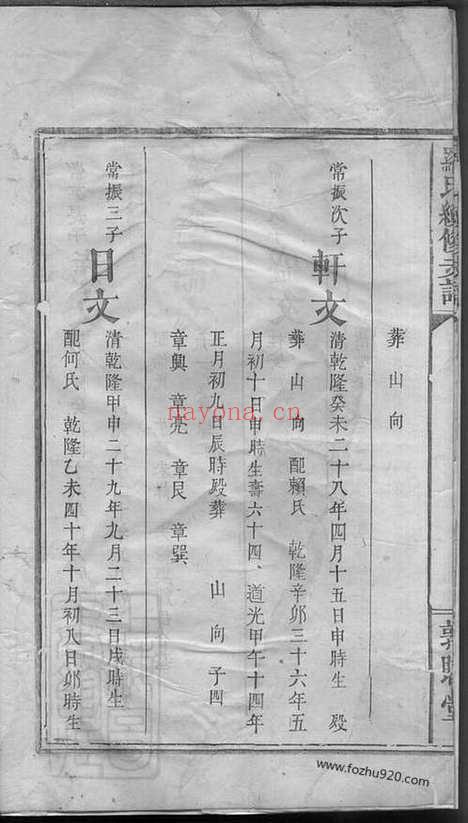 羅氏續修支譜
敦睦堂
葬山向
常振次子
軒文
清乾隆癸未二十八年四月十五日申時生 殁
葬山 向 配賴氏 乾隆辛卯三十六年五
月初十日申時生壽六十四、道光甲午十四年
正月初九日辰時殁葬 山向子四
章興 章亮 章艮 章巽
常振三子
日文
清乾隆甲申二十九年九月二十三日戌時生
配何氏 乾隆乙未四十年十月初八日卯時生
nayona.cn
www.fozhu920.com